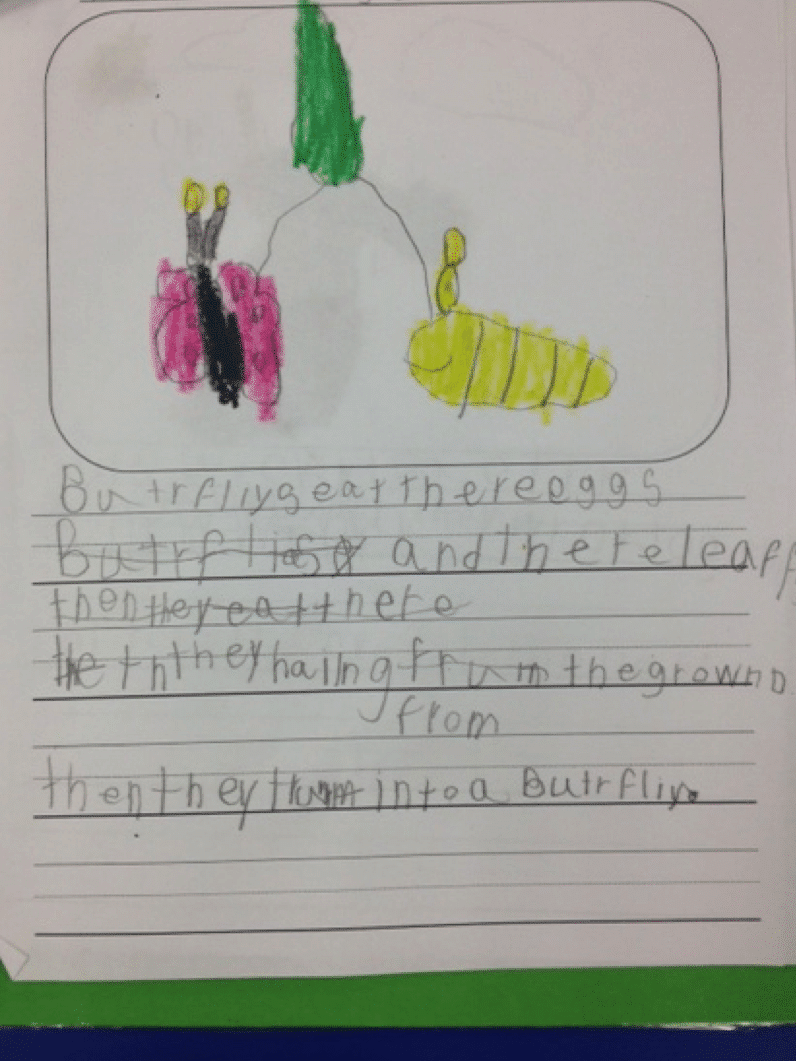 Butrfliys eat there eggs
Butrflisy and there leaff
then they eat there
the thn they haing frum the grownd
from
then they turn into a Butrfliy.